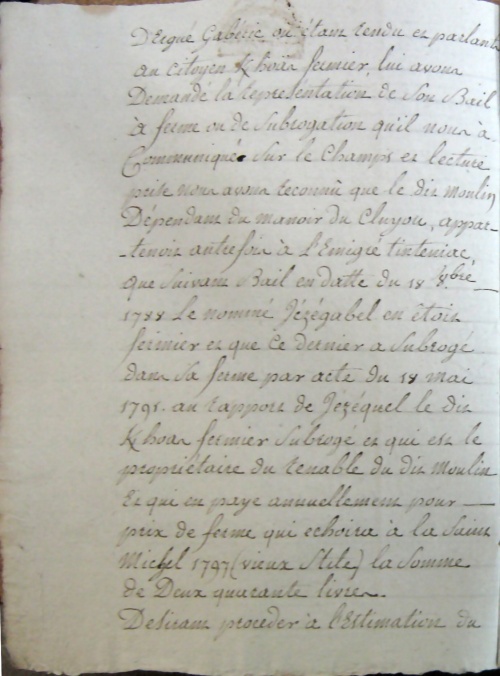 D'Ergué Gabéric où étant rendu et parlant
au citoyen Khoas fermier, lui avons
Demandé la représentation de Son Bail
à ferme ou de Subrogation qu'il nous à
Communiqué Sur le Champs et lecture
prise nous avons reconnû que le dit moulin
Dépendant du manoir du Cluyou, appar-
-tenoit autrefois à L'Emigré tinteniac,
que Suivant Bail en datte du 18 bre
1788 Le nommé Jézégabel en étoit
fermier et que Ce dernier a Subrogé
dans Sa ferme par acte du 18 mai
1791. au rapport de Jézéquel le dit
Khoas fermier Subrogé et qui est le
propriétaire du tenable du dit Moulin
Et qui en paye annuellement pour
prix de ferme qui echoira à la Saint
Michel 1797 (vieux Stile) la Somme
de Deux quarante livres.
Desirant procéder à l'Estimation du